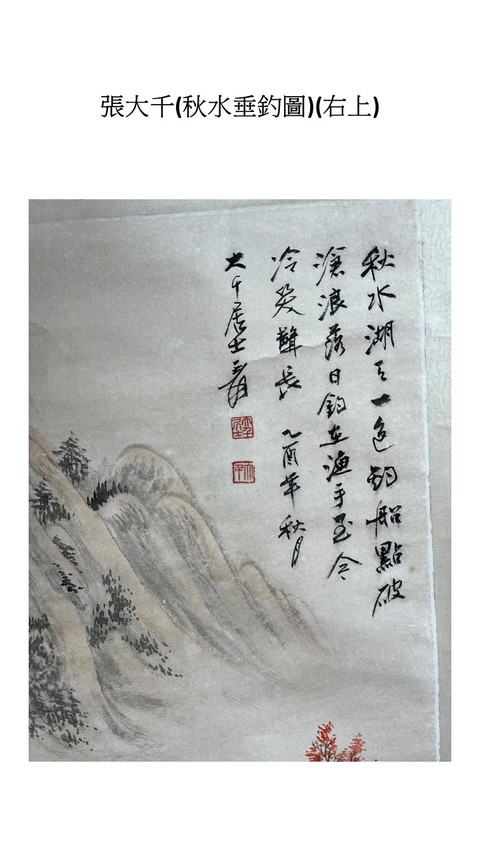 張大千(秋水垂釣圖)(右上)
秋水湖天一色釣船點破
滄浪落日釣漁手至今
冷笑聲長 乙酉年秋月
大千居士爰